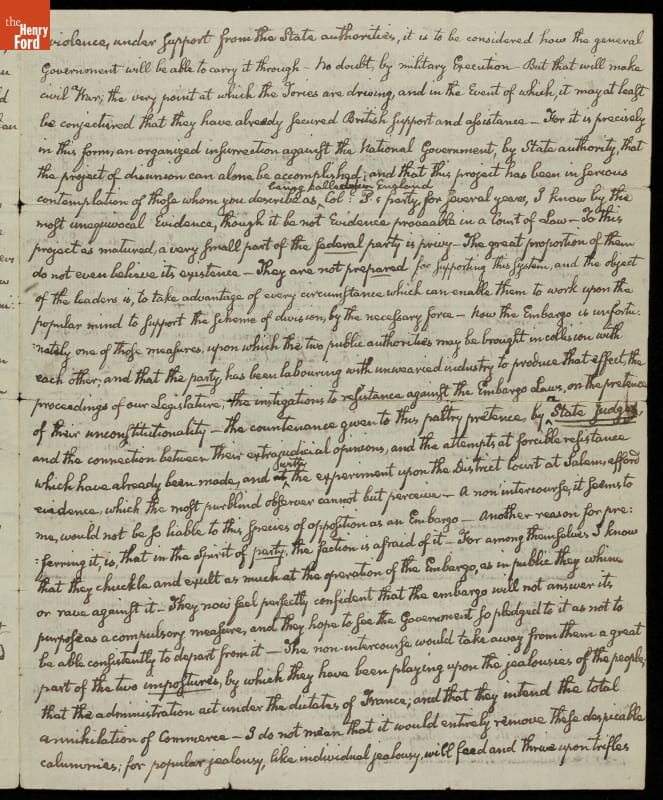 the
Henry
Ford
violence, under support from the State authorities, it is to be considered how the general
Government will be able to carry it through — No doubt, by military Execution — But that will make
civil War; the very point at which the Tories are driving, and in the Event of which, it may at least
be conjectured that they have already secured British support and assistance — For it is precisely
in this form, an organized insurrection against the National Government, by State authority, that
the project of disunion can alone be accomplished; and that this project has been in serious
in New England
contemplation of those whom you describe as, Col: P.'s party, for several years, I know by the
most unequivocal Evidence, though it be not Evidence proveable in a Court of Law — To this
project as matured, a very small part of the federal party is privy — The great proportion of them
do not even believe its existence — They are not prepared for supporting this System, and the object
of the leaders is, to take advantage of every circumstance which can enable them to work upon the
popular mind to support the scheme of division, by the necessary force — Now the Embargo is unfortu:
nately one of those measures, upon which the two public authorities may be brought in collision with
each other; and that the party, has been labouring with unwearied industry to produce that effect, the
proceedings of our Legislature, the instigations to resistance against the Embargo Laws, on the pretence
of their unconstitutionality — the countenance given to this paltry pretence, by a State Judge,
and the connection between their extrajudicial opinions, and the attempts at forcible resistance
which have already been made, and the experiment upon the District Court at Salem, afford
evidence, which the most purblind observer cannot but perceive — A non intercourse, it seems to
me, would not be so liable to this species of opposition as an Embargo — Another reason for pre:
:ferring it, is, that in the spirit of party, the faction is afraid of it — For among themselves I know
that they chuckle and exult as much at the operation of the Embargo, as in public they whine
or rave against it — They now feel perfectly confident that the embargo will not answer its
purpose as a compulsory measure, and they hope to see the Government so pledged to it as not to
be able consistently to depart from it — The non-intercourse would take away from them a great
part of the two impostures, by which they have been playing upon the jealousies of the people;
that the administration act under the dictates of France; and that they intend the total
annihilation of Commerce — I do not mean that it would entirely remove these despicable
calumnies; for popular jealousy, like individual jealousy, will feed and thrive upon trifles